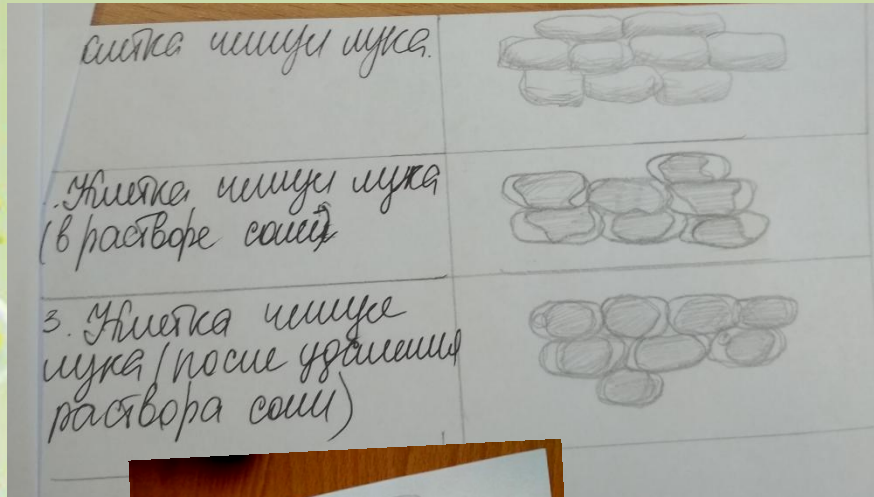 клетка чешуи лука.
. Клетка чешуи лука
(в растворе соли)
3. Клетка чешуе
лука (после удаления
раствора соли)